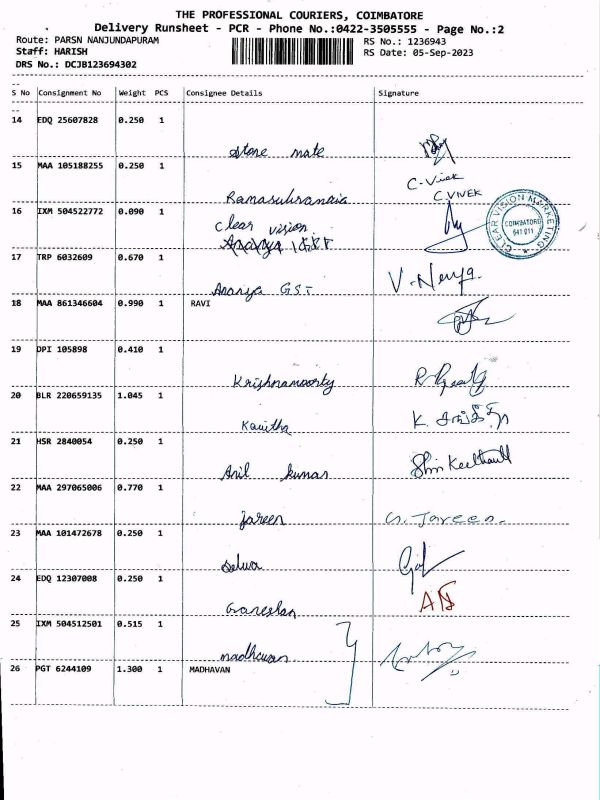 THE PROFESSIONAL COURIERS, COIMBATORE
Delivery Runsheet - PCR - Phone No.:0422-3505555 - Page No.:2
Route: PARSN NANJUNDAPURAM
RS No.: 1236943
Staff: HARISH
RS Date: 05-Sep-2023
DRS No.: DCJB123694302
S No Consignment No Weight PCS Consignee Details Signature
14 EDQ 25607828 0.250 1
Stone mate
15 MAA 105188255 0.250 1
C. Vivek
C. VIVEK
16 IXM 504522772 0.090 1
Clear vision
CLEAR VISION MARKETING
COIMBATORE
641 011
17 TRP 6032609 0.670 1
Ananya GST
18 MAA 861346604 0.990 1 RAVI
19 DPI 105898 0.410 1
Krishnamoorty
20 BLR 220659135 1.045 1
Kavitha
21 HSR 2840054 0.250 1
Anil kumar
22 MAA 297065006 0.770 1
Jareen G. Jareen
23 MAA 101472678 0.250 1
Selva
24 EDQ 12307008 0.250 1
Ganeshan
25 IXM 504512501 0.515 1
madhavan
26 PGT 6244109 1.300 1 MADHAVAN